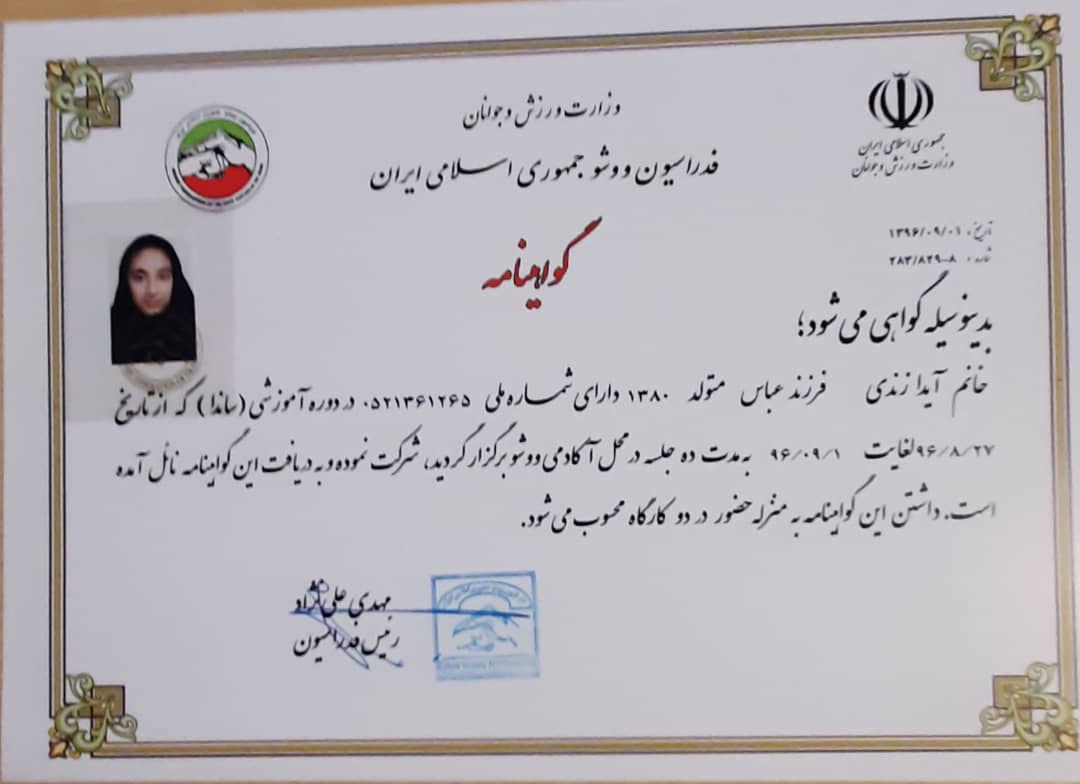 وزارت ورزش و جوانان
فدراسیون ووشو جمهوری اسلامی ایران
جمهوری اسلامی ایران
وزارت ورزش و جوانان
تاریخ: ۱۳۹۶/۰۹/۰۱
شماره: ۲۸۳/۸۲۹-۸
گواهینامه
بدینوسیله گواهی می شود؛
خانم آیدا زندی فرزند عباس متولد ۱۳۸۰ دارای شماره ملی ۰۵۲۱۳۶۱۲۶۵ در دوره آموزشی (ساندا) که از تاریخ
۹۶/۸/۲۷ لغایت ۹۶/۰۹/۱ به مدت ده جلسه در محل آکادمی ووشو برگزار گردید، شرکت نموده و به دریافت این گواهینامه نائل آمده
است. داشتن این گواهینامه به منزله حضور در دو کارگاه محسوب می شود.
مهدی علی نژاد
رئیس فدراسیون